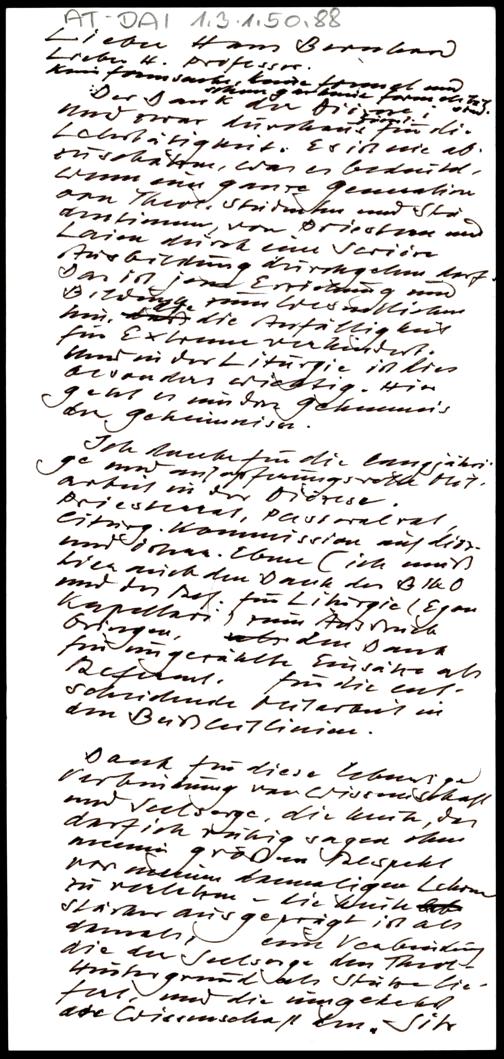 AT-DAI 1.3.1.50.88
Lieber Hans Bernhard
Lieber H. Professor.
keine
Der Dank der Diözese:
und zwar durchaus für die
Lehrtätigkeit. Es ist nie ab-
zuschätzen, was es bedeutet,
wenn eine ganze Generation
von Theol. Studenten und Stu
dentinnen, von Priestern und
Laien durch eine seriöse
Ausbildung durchgehen darf.
Das ist jene Erziehung und
Bildung zum Wesentlichen
hin, die Anfälligkeit
für Extreme verhindert.
Und in der Liturgie ist dies
besonders wichtig. Hier
geht es um das Geheimnis
der Geheimnisse.
Ich danke für die langjähri-
ge und aufopferungsvolle Mit-
arbeit in der Diözese.
Priesterrat, Pastoralrat,
Liturg. Kommission auf diöz.
und österr. Ebene (ich muß
hier auch den Dank der BIKO
und des Ref. für Liturgie (Egon
Kapellari) zum Ausdruck
bringen, den Dank
für ungezählte Einsätze als
Referent. für die ent-
scheidende Mitarbeit in
den Bußleitlinien.
Dank für diese lebendige
Verbindung von Wissenschaft
und Seelsorge, die heute, das
darf ich ruhig sagen ohne
meinen großen Respekt
vor meinen damaligen Lehrern
zu verletzen - die heute
stärker ausgeprägt ist als
damals: eine Verbindung
die der Seelsorge den Theol-
Hintergrund als Stütze lie-
fert, und die umgekehrt
der Wissenschaft den "Sitz